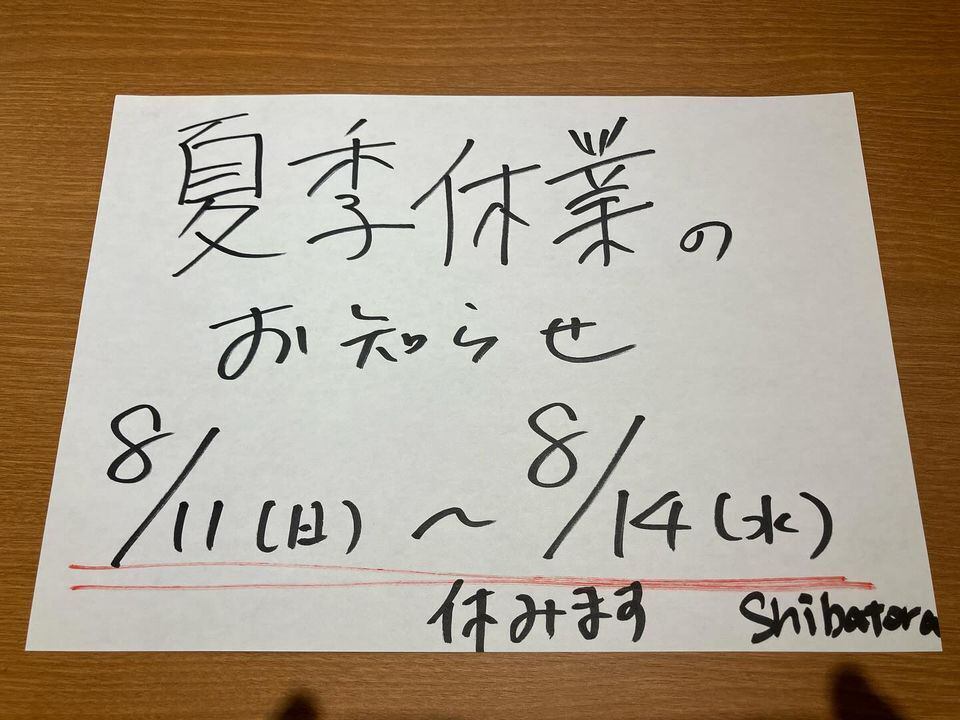 夏季休業の
お知らせ
8/11(日)〜8/14(水)
休みます Shibatora